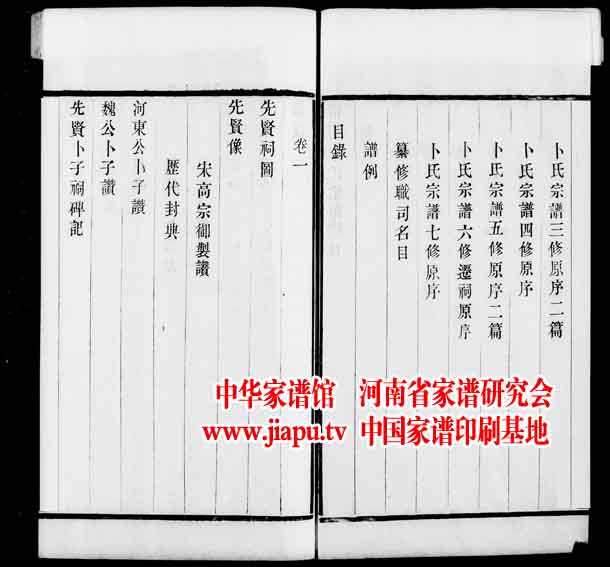 卜氏宗譜三修原序二篇
卜氏宗譜四修原序
卜氏宗譜五修原序二篇
卜氏宗譜六修遷祠原序
卜氏宗譜七修原序
纂修職司名目
譜例
目錄
卷一
先賢祠圖
先賢像
宋高宗御製讚
歷代封典
河東公卜子讚
魏公卜子讚
先賢卜子祠碑記
中华家谱馆 河南省家谱研究会
www.jiapu.tv 中国家谱印刷基地